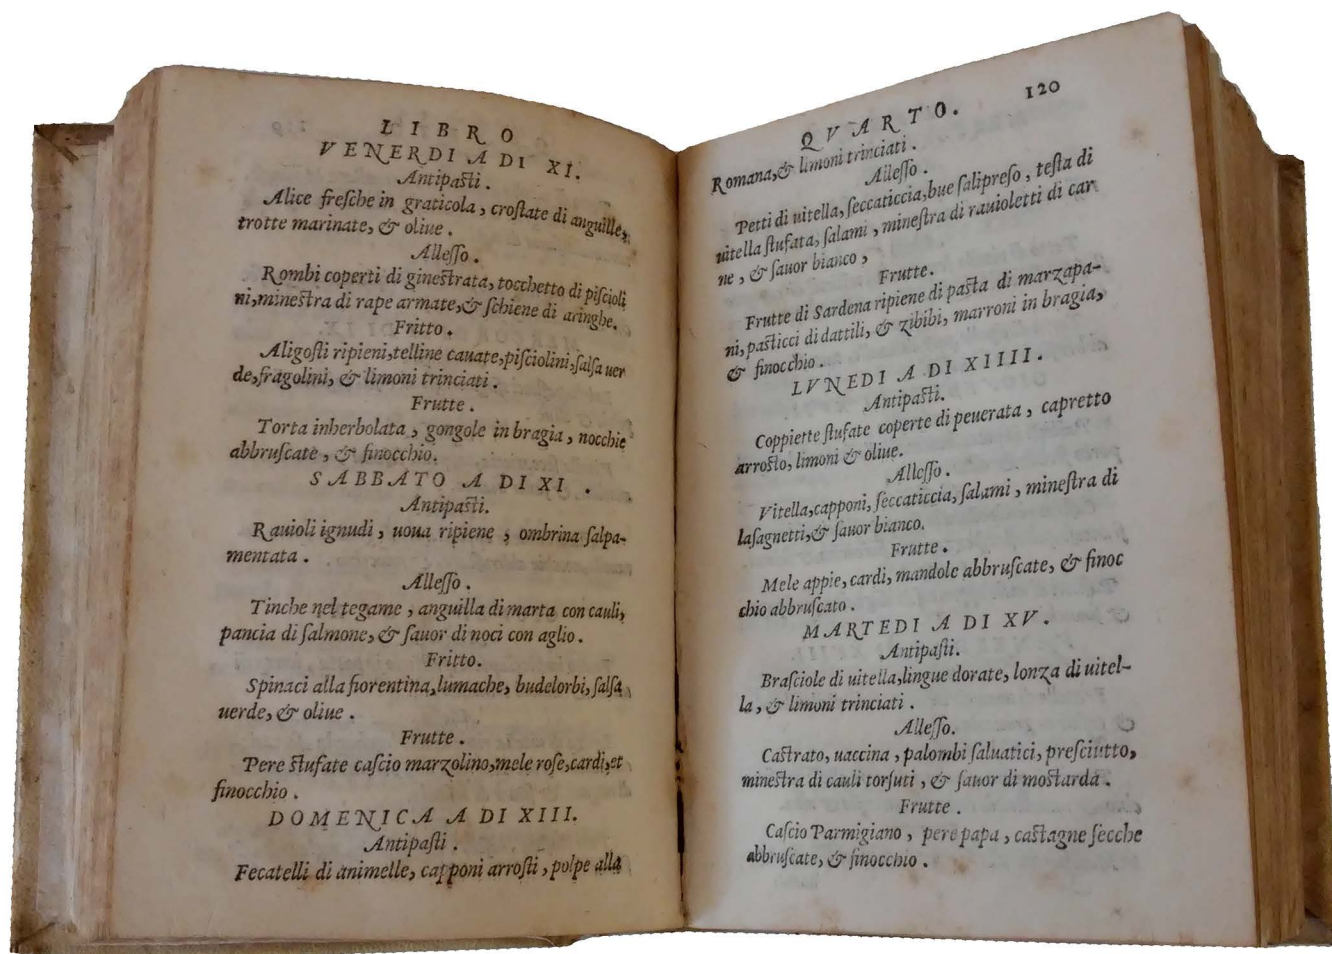 LIBRO
VENERDI A DI XI.
Antipaſti.
Alice freſche in graticola, croſtate di anguille,
trotte marinate, & oliue.
Alleſſo.
Rombi coperti di gineſtrata, tocchetto di piſcioli
ni, mineſtra di rape armate, & ſchiene di aringhe.
Fritto.
Aligoſti ripieni, telline cauate, piſciolini, ſalſa uer
de, fragolini, & limoni trinciati.
Frutte.
Torta inherbolata, gongole in bragia, nocchie
abbruſcate, & finocchio.
SABBATO A DI XI.
Antipaſti.
Rauioli ignudi, uoua ripiene, ombrina ſalpa-
mentata.
Alleſſo.
Tinche nel tegame, anguilla di marta con cauli,
pancia di ſalmone, & ſauor di noci con aglio.
Fritto.
Spinaci alla fiorentina, lumache, budelorbi, ſalſa
uerde, & oliue.
Frutte.
Pere ſtufate caſcio marzolino, mele roſe, cardi, et
finocchio.
DOMENICA A DI XIII.
Antipaſti.
Fecatelli di animelle, capponi arroſti, polpe alla
QVARTO. 120
Romana, & limoni trinciati.
Alleſſo.
Petti di uitella, ſeccaticcia, bue ſalipreſo, teſta di
uitella ſtufata, ſalami, mineſtra di rauioletti di car
ne, & ſauor bianco,
Frutte.
Frutte di Sardena ripiene di paſta di marzapa-
ni, paſticci di dattili, & zibibi, marroni in bragia,
& finocchio.
LVNEDI A DI XIIII.
Antipaſti.
Coppiette ſtufate coperte di peuerata, capretto
arroſto, limoni & oliue.
Alleſſo.
Vitella, capponi, ſeccaticcia, ſalami, mineſtra di
laſagnetti, & ſauor bianco.
Frutte.
Mele appie, cardi, mandole abbruſcate, & finoc
chio abbruſcato.
MARTEDI A DI XV.
Antipaſti.
Braſciole di uitella, lingue dorate, lonza di uitel-
la, & limoni trinciati.
Alleſſo.
Caſtrato, uaccina, palombi ſaluatici, preſciutto,
mineſtra di cauli torſuti, & ſauor di moſtarda.
Frutte.
Caſcio Parmigiano, pere papa, caſtagne ſecche
abbruſcate, & finocchio.